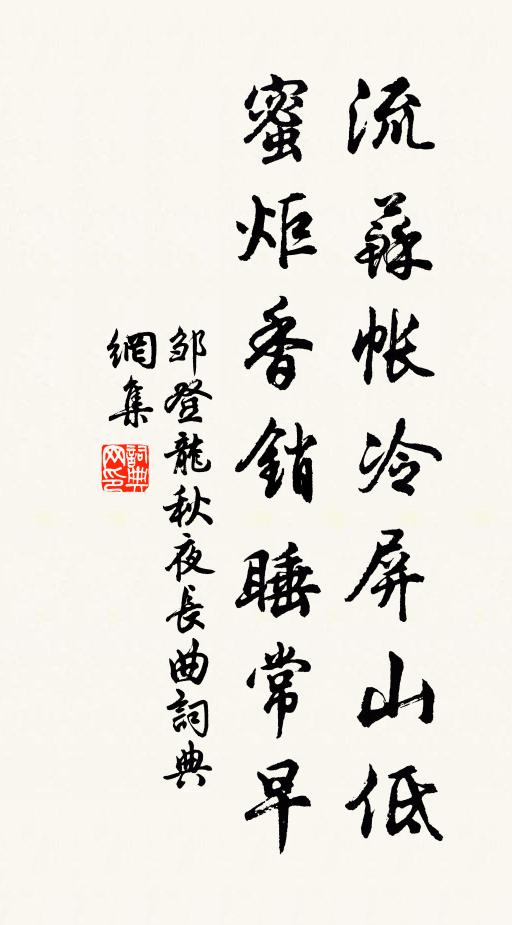 流蘇帳冷屏山低
蜜炬香銷睡常早
邹登龍秋夜長曲詞典
網集
詞典
网印